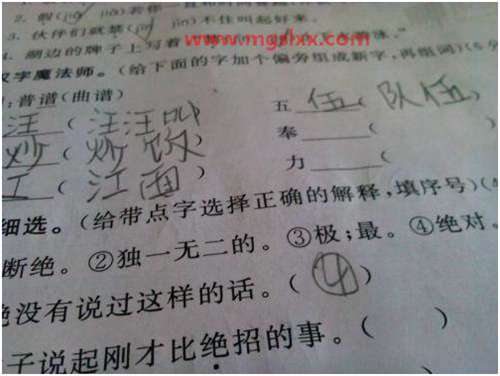 2. 假(jiǎ jià)若你一直
3. 伙伴们就禁( jīn)不住叫起好来。
4. 湖边的牌子上写着
www.mgslxx.com
汉字魔法师。(给下面的字加个偏旁组成新字,再组词)(
:普谱(曲谱)
五 伍 ( 队伍 )
汪 ( 汪汪叫
奉 (
炒 ( 炒饭
力 (
工 ( 江面 )
细选。(给带点字选择正确的解释,填序号)(
断绝。②独一无二的。③极;最。④绝对。
绝没有说过这样的话。( ④ )
子说起刚才比绝招的事。( )